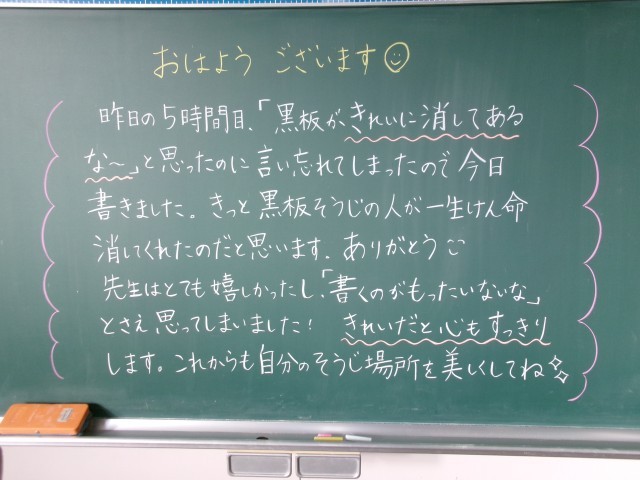 おはよう ございます
昨日の5時間目、「黒板がきれいに消してある
な～」と思ったのに言い忘れてしまったので今日
書きました。きっと黒板そうじの人が一生けん命
消してくれたのだと思います。ありがとう
先生はとても嬉しかったし、「書くのがもったいないな」
とさえ思ってしまいました! きれいだと心もすっきり
します。これからも自分のそうじ場所を美しくしてね